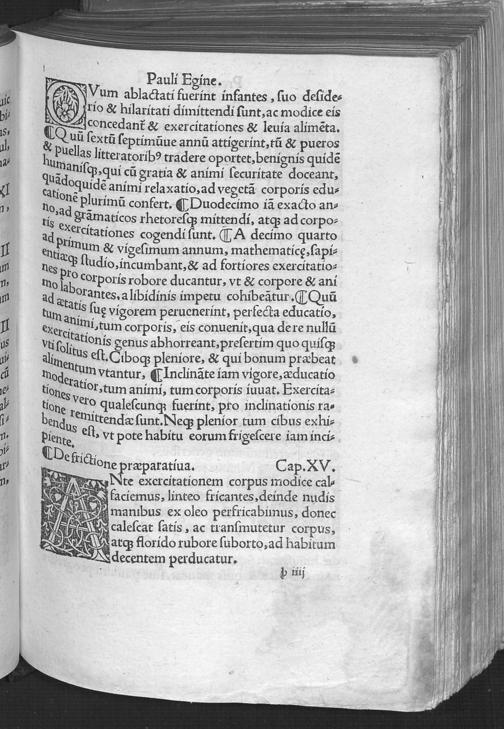 Pauli Egine.
QVum ablactati fuerint infantes, suo deside-
rio & hilaritati dimittendi sunt, ac modice eis
concedant̃ & exercitationes & leuia alimēta.
¶Quū sextū septimūue annū attigerint, tū & pueros
& puellas litteratoribꝰ tradere oportet, benignis quidē
humanisqꝫ, qui cū gratia & animi securitate doceant,
quādoquidē animi relaxatio, ad vegetā corporis edu-
cationē plurimū confert. ¶Duodecimo iā exacto an-
no, ad grāmaticos rhetoresqꝫ mittendi, atqꝫ ad corpo-
ris exercitationes cogendi sunt. ¶A decimo quarto
ad primum & vigesimum annum, mathematicę, sapi-
entiæqꝫ studio, incumbant, & ad fortiores exercitatio-
nes pro corporis robore ducantur, vt & corpore & ani
mo laborantes, a libidinis impetu cohibeātur. ¶Quū
ad ætatis suę vigorem peruenerint, perfecta educatio,
tum animi, tum corporis, eis conuenit, qua de re nullū
exercitationis genus abhorreant, presertim quo quisqꝫ
vti solitus est. Ciboqꝫ pleniore, & qui bonum præbeat
alimentum vtantur, ¶Inclināte iam vigore, æducatio
moderatior, tum animi, tum corporis iuuat. Exercita-
tiones vero qualescunqꝫ fuerint, pro inclinationis ra-
tione remittendæ sunt. Neqꝫ plenior tum cibus exhi-
bendus est, vt pote habitu eorum frigescere iam inci-
piente.
¶De frictione præparatiua. Cap.XV.
ANte exercitationem corpus modice cal-
faciemus, linteo fricantes, deinde nudis
manibus ex oleo perfricabimus, donec
calescat satis, ac transmutetur corpus,
atqꝫ florido rubore suborto, ad habitum
decentem perducatur.
þ iiij